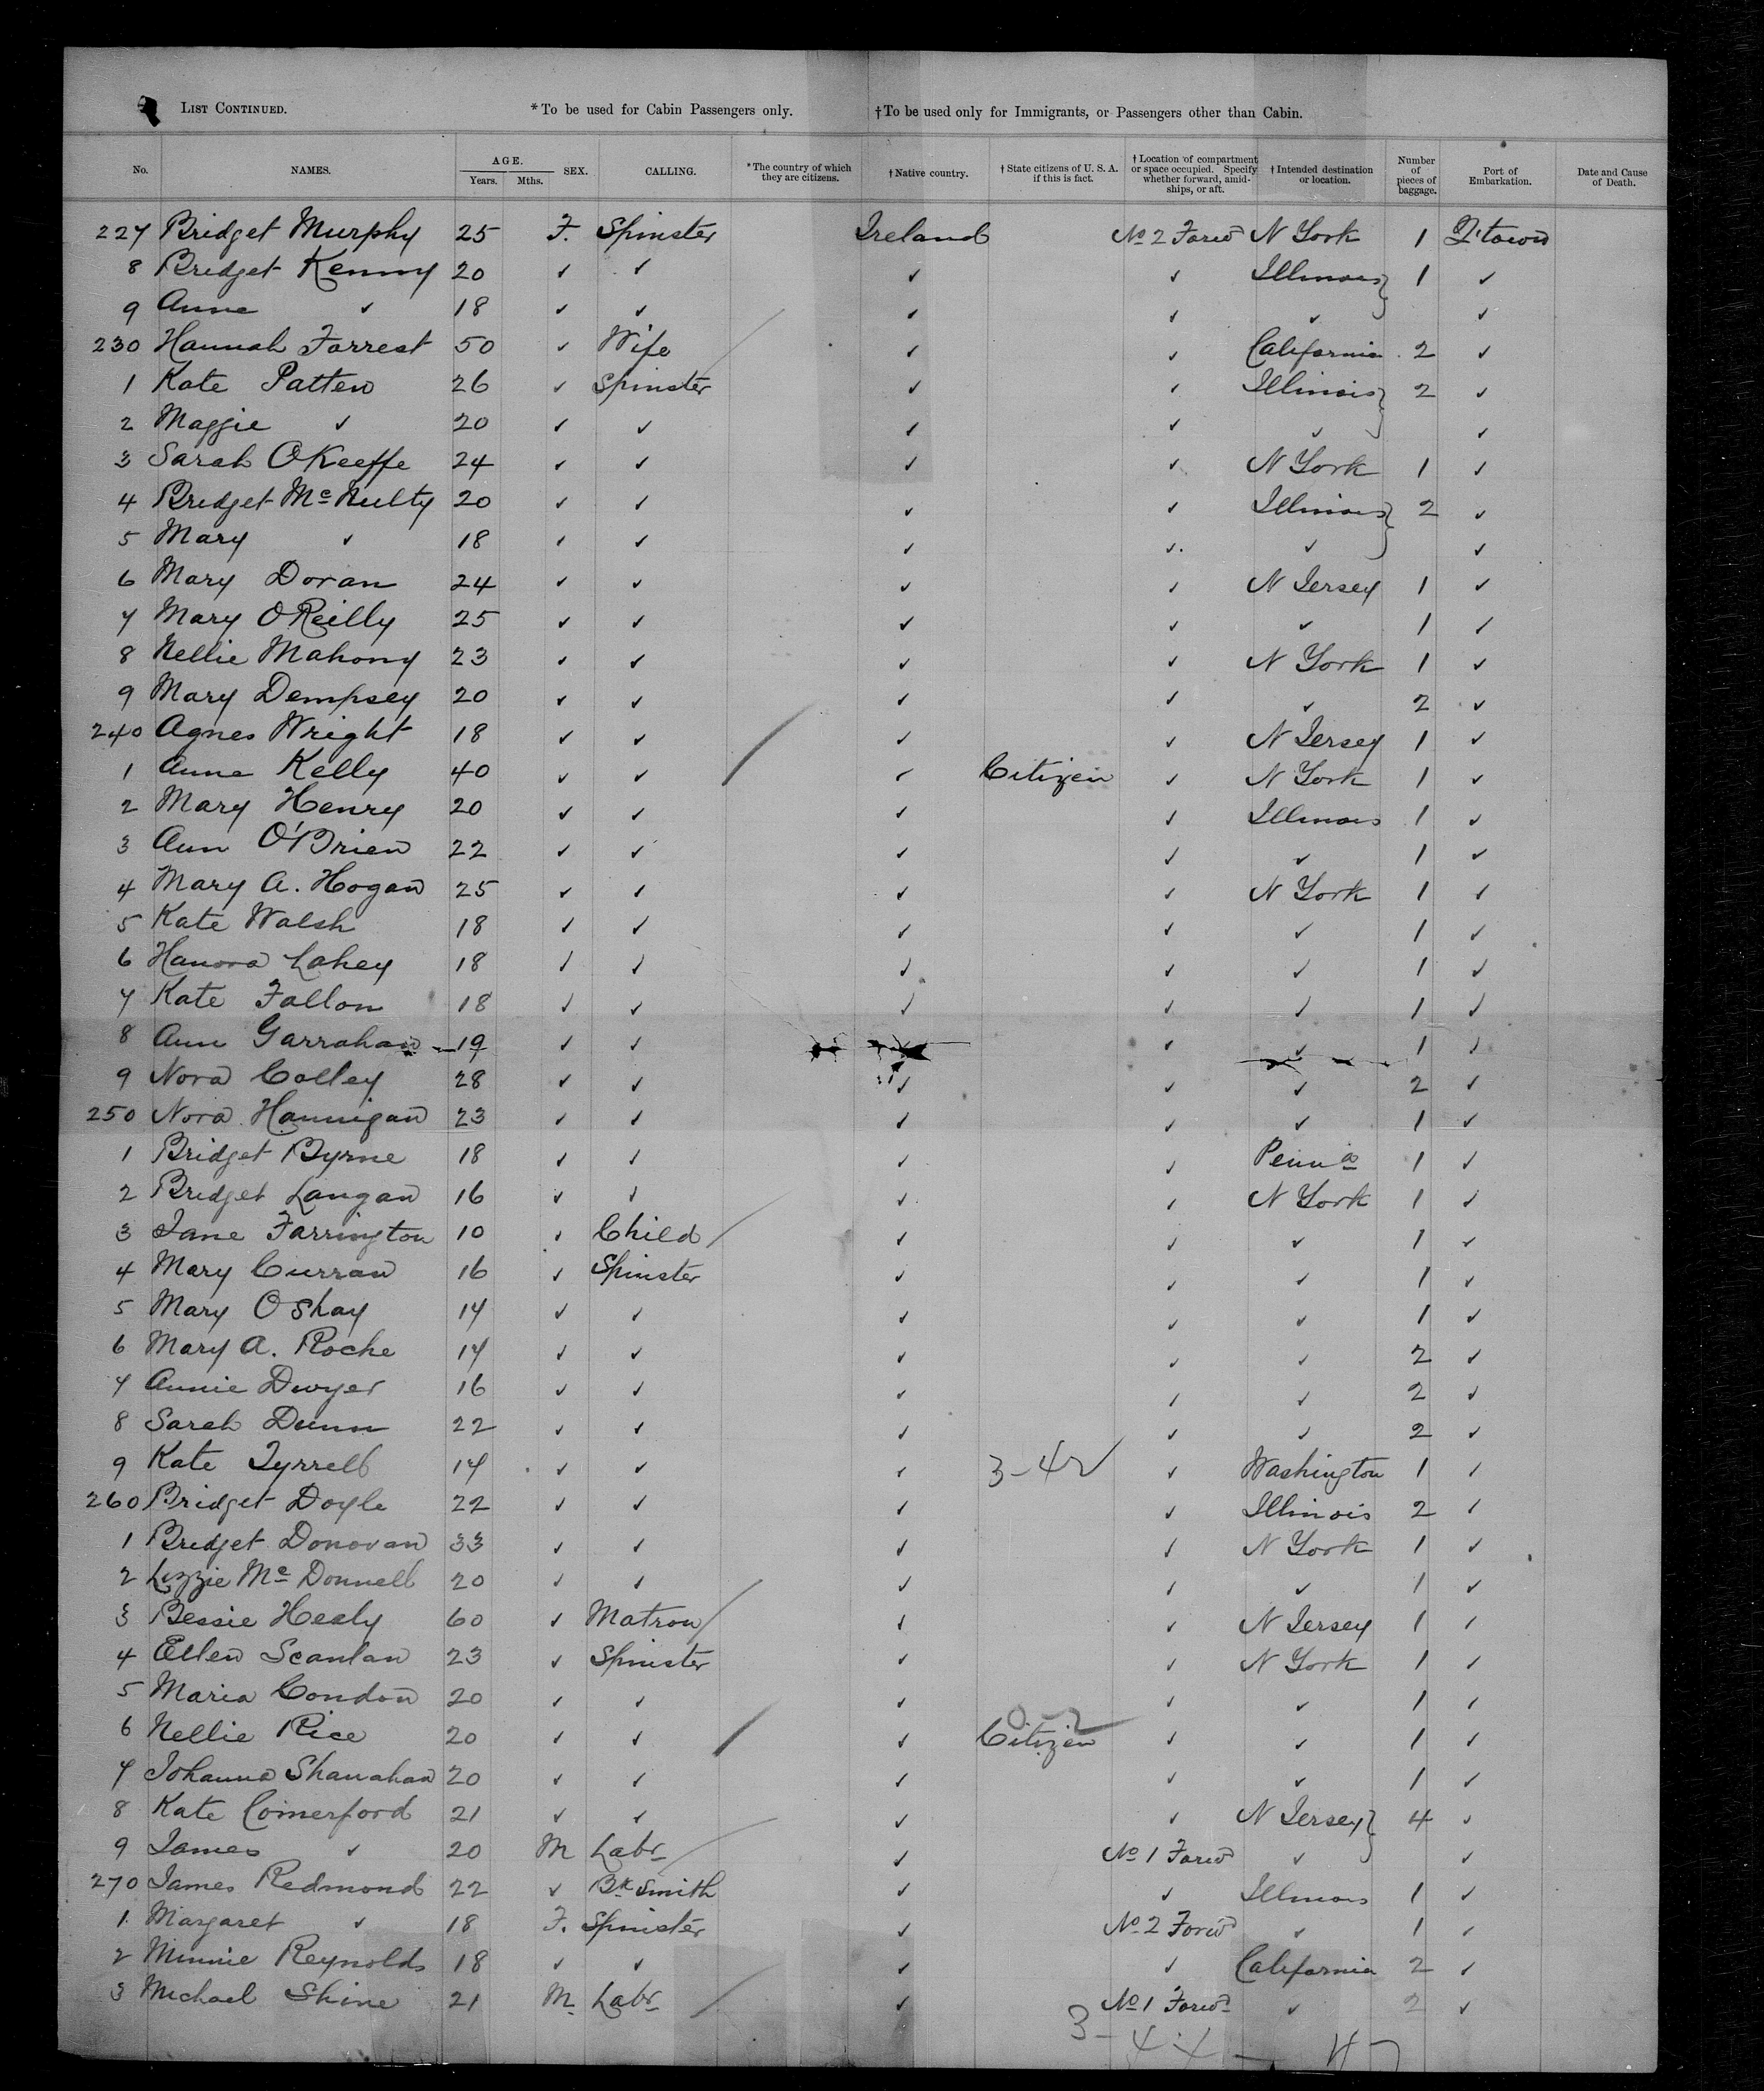 LIST CONTINUED. *To be used for Cabin Passengers only. †To be used only for Immigrants, or Passengers other than Cabin.
No. NAMES. AGE. Years. Mths. SEX. CALLING. *The country of which they are citizens. †Native country. †State citizens of U. S. A. if this is fact. †Location of compartment or space occupied. Specify whether forward, amidships, or aft. †Intended destination or location. Number of pieces of baggage. Port of Embarkation. Date and Cause of Death.
227 Bridget Murphy 25 F. Spinster Ireland No 2 Forwd N York 1 Q'town
8 Bridget Kenny 20 ✓ ✓ ✓ ✓ Illinois 1 ✓
9 Anne ✓ 18 ✓ ✓ ✓ ✓ ✓ ✓
230 Hannah Forrest 50 ✓ Wife ✓ ✓ California 2 ✓
1 Kate Patten 26 ✓ Spinster ✓ ✓ Illinois 2 ✓
2 Maggie ✓ 20 ✓ ✓ ✓ ✓ ✓ ✓
3 Sarah OKeeffe 24 ✓ ✓ ✓ ✓ N York 1 ✓
4 Bridget McNulty 20 ✓ ✓ ✓ ✓ Illinois 2 ✓
5 Mary ✓ 18 ✓ ✓ ✓ ✓ ✓ ✓
6 Mary Doran 24 ✓ ✓ ✓ ✓ N Jersey 1 ✓
7 Mary OReilly 25 ✓ ✓ ✓ ✓ ✓ 1 ✓
8 Nellie Mahony 23 ✓ ✓ ✓ ✓ N York 1 ✓
9 Mary Dempsey 20 ✓ ✓ ✓ ✓ ✓ 2 ✓
240 Agnes Wright 18 ✓ ✓ ✓ ✓ N Jersey 1 ✓
1 Anne Kelly 40 ✓ ✓ ✓ Citizen ✓ N York 1 ✓
2 Mary Henry 20 ✓ ✓ ✓ ✓ Illinois 1 ✓
3 Ann O'Brien 22 ✓ ✓ ✓ ✓ ✓ 1 ✓
4 Mary A. Hogan 25 ✓ ✓ ✓ ✓ N York 1 ✓
5 Kate Walsh 18 ✓ ✓ ✓ ✓ ✓ 1 ✓
6 Hanora Lahey 18 ✓ ✓ ✓ ✓ ✓ 1 ✓
7 Kate Fallon 18 ✓ ✓ ✓ ✓ ✓ 1 ✓
8 Ann Garrahan 19 ✓ ✓ ✓ ✓ 1 ✓
9 Nora Colley 28 ✓ ✓ ✓ ✓ ✓ 2 ✓
250 Nora Hannigan 23 ✓ ✓ ✓ ✓ ✓ 1 ✓
1 Bridget Byrne 18 ✓ ✓ ✓ ✓ Penna 1 ✓
2 Bridget Langan 16 ✓ ✓ ✓ ✓ N York 1 ✓
3 Jane Farrington 10 ✓ Child ✓ ✓ ✓ 1 ✓
4 Mary Curran 16 ✓ Spinster ✓ ✓ ✓ 1 ✓
5 Mary OShay 14 ✓ ✓ ✓ ✓ ✓ 1 ✓
6 Mary A. Roche 14 ✓ ✓ ✓ ✓ ✓ 2 ✓
7 Annie Dwyer 16 ✓ ✓ ✓ ✓ ✓ 2 ✓
8 Sarah Dunn 22 ✓ ✓ ✓ ✓ ✓ 2 ✓
9 Kate Tyrrell 14 ✓ ✓ ✓ 3-42 ✓ Washington 1 ✓
260 Bridget Doyle 22 ✓ ✓ ✓ ✓ Illinois 2 ✓
1 Bridget Donovan 33 ✓ ✓ ✓ ✓ N York 1 ✓
2 Lizzie McDonnell 20 ✓ ✓ ✓ ✓ ✓ 1 ✓
3 Bessie Healy 60 ✓ Matron ✓ ✓ N Jersey 1 ✓
4 Ellen Scanlan 23 ✓ Spinster ✓ ✓ N York 1 ✓
5 Maria Condon 20 ✓ ✓ ✓ ✓ ✓ 1 ✓
6 Nellie Rice 20 ✓ ✓ ✓ Citizen 0-2 ✓ ✓ 1 ✓
7 Johanna Shanahan 20 ✓ ✓ ✓ ✓ ✓ 1 ✓
8 Kate Comerford 21 ✓ ✓ ✓ ✓ N Jersey 4 ✓
9 James ✓ 20 M Labr ✓ No 1 Forwd ✓ ✓
270 James Redmond 22 ✓ Bk Smith ✓ ✓ Illinois 1 ✓
1 Margaret ✓ 18 F. Spinster ✓ No 2 Forwd ✓ 1 ✓
2 Minnie Reynolds 18 ✓ ✓ ✓ ✓ California 2 ✓
3 Michael Shine 21 M. Labr ✓ No 1 Forwd ✓ 2 ✓